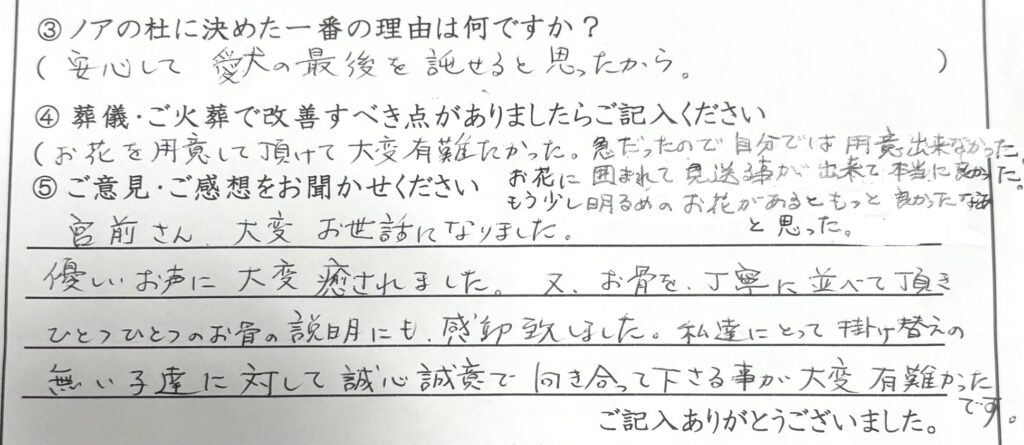 ③ ノアの杜に決めた一番の理由は何ですか？
( 安心して 愛犬の最後を託せると思ったから。 )
④ 葬儀・ご火葬で改善すべき点がありましたらご記入ください
(お花を用意して頂けて大変有難たかった。急だったので自分では用意出来なかった。
お花に囲まれて見送る事が出来て本当に良かった。
もう少し明るめのお花があるともっと良かったなあ
と思った。
⑤ ご意見・ご感想をお聞かせください
宮前さん、大変お世話になりました。
優しいお声に大変癒されました。又、お骨を、丁寧に並べて頂き
ひとつひとつのお骨の説明にも、感動致しました。私達にとって掛け替えの
無い子達に対して誠心誠意で向き合って下さる事が大変有難かった
です。
ご記入ありがとうございました。